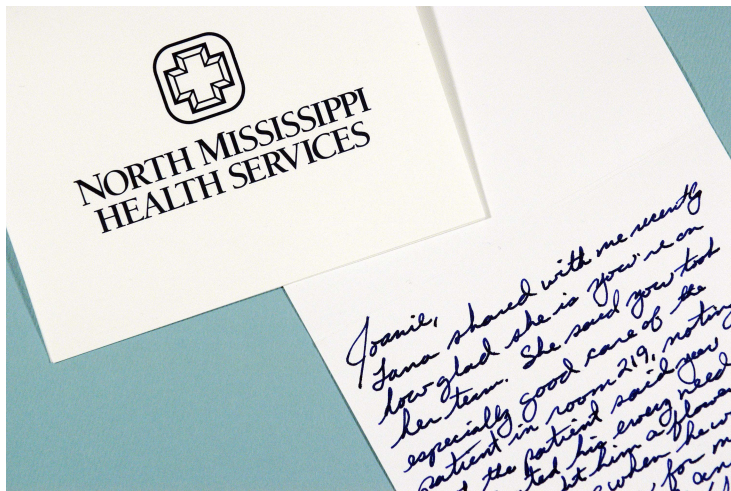 NORTH MISSISSIPPI
HEALTH SERVICES
Joanie,
Lana shared with me recently
how glad she is you're on
her team. She said you took
especially good care of the
patient in room 219, noting
the patient said you
his every need
him a flower
when he
for m